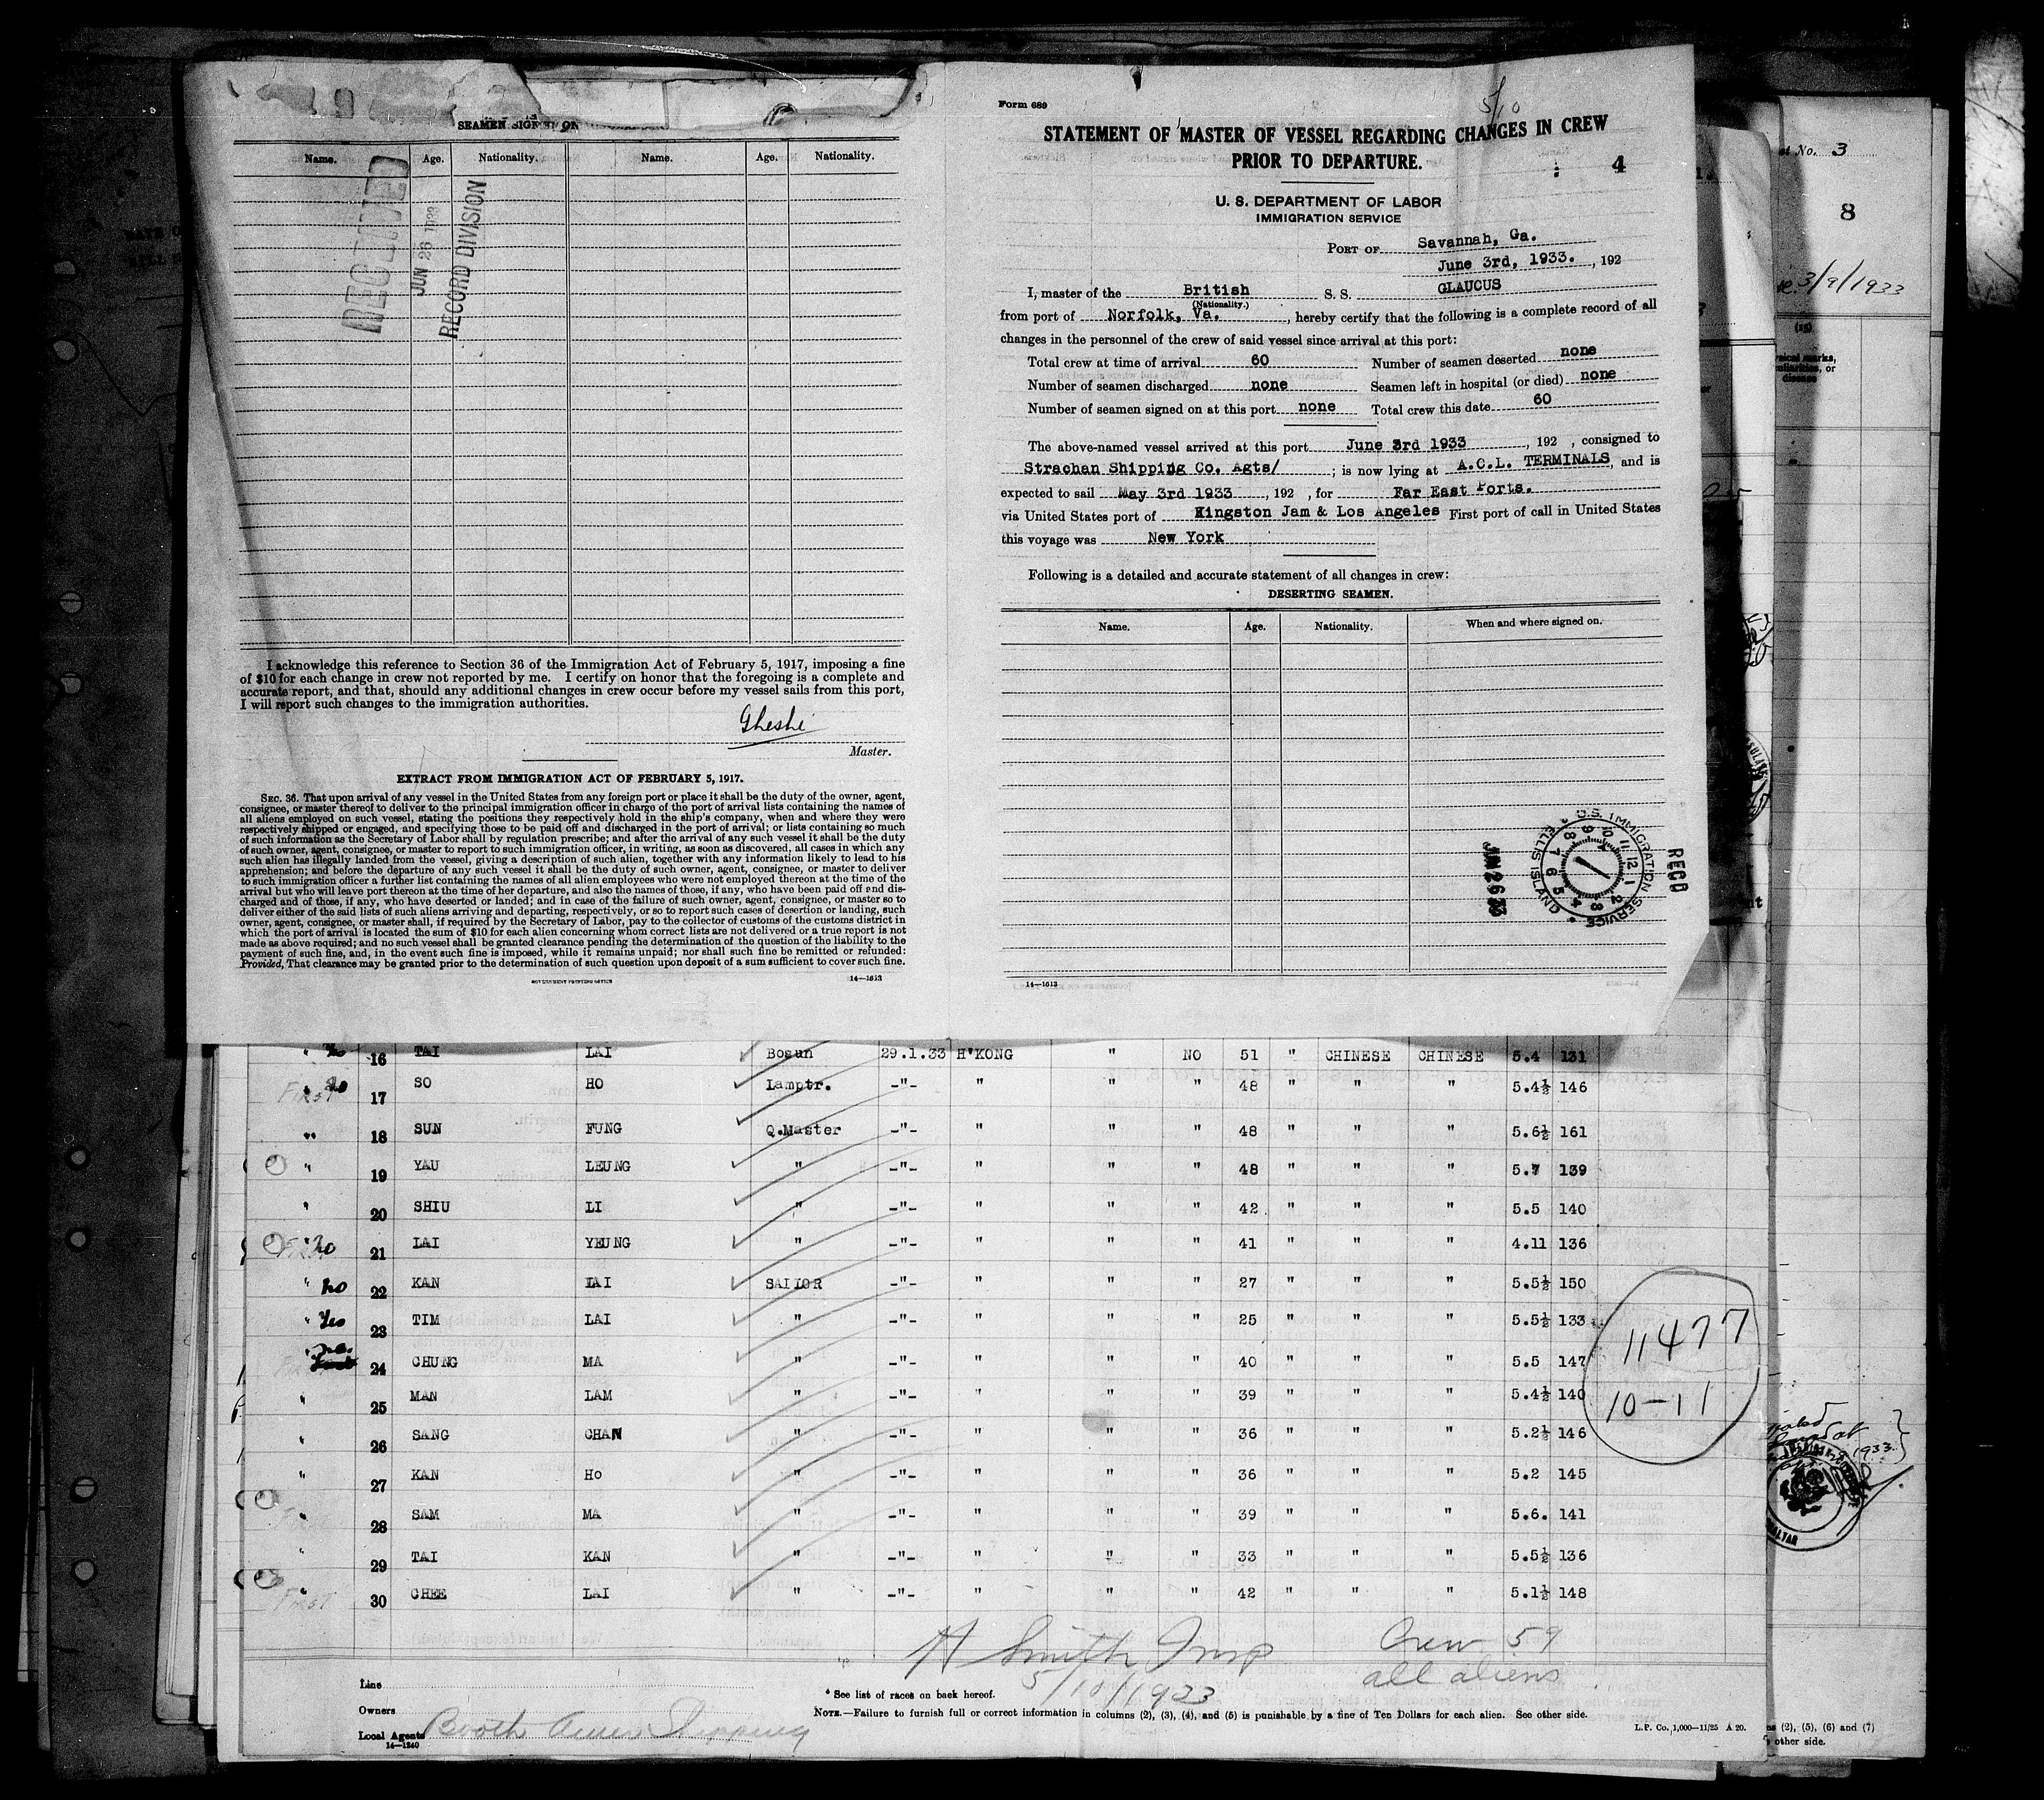 SEAMEN SIGNED ON
Name. Age. Nationality. Name. Age. Nationality.
RECEIVED
JUN 26 1933
RECORD DIVISION
I acknowledge this reference to Section 36 of the Immigration Act of February 5, 1917, imposing a fine
of $10 for each change in crew not reported by me. I certify on honor that the foregoing is a complete and
accurate report, and that, should any additional changes in crew occur before my vessel sails from this port,
I will report such changes to the immigration authorities.
Master.
EXTRACT FROM IMMIGRATION ACT OF FEBRUARY 5, 1917.
SEC. 36. That upon arrival of any vessel in the United States from any foreign port or place it shall be the duty of the owner, agent,
consignee, or master thereof to deliver to the principal immigration officer in charge of the port of arrival lists containing the names of
all aliens employed on such vessel, stating the positions they respectively hold in the ship's company, when and where they were
respectively shipped or engaged, and specifying those to be paid off and discharged in the port of arrival; or lists containing so much
of such information as the Secretary of Labor shall by regulation prescribe; and after the arrival of any such vessel it shall be the duty
of such owner, agent, consignee, or master to report to such immigration officer, in writing, as soon as discovered, all cases in which any
such alien has illegally landed from the vessel, giving a description of such alien, together with any information likely to lead to his
apprehension; and before the departure of any such vessel it shall be the duty of such owner, agent, consignee, or master to deliver
to such immigration officer a further list containing the names of all alien employees who were not employed thereon at the time of the
arrival but who will leave port thereon at the time of her departure, and also the names of those, if any, who have been paid off and dis-
charged and of those, if any, who have deserted or landed; and in case of the failure of such owner, agent, consignee, or master so to
deliver either of the said lists of such aliens arriving and departing, respectively, or so to report such cases of desertion or landing, such
owner, agent, consignee, or master shall, if required by the Secretary of Labor, pay to the collector of customs of the customs district in
which the port of arrival is located the sum of $10 for each alien concerning whom correct lists are not delivered or a true report is not
made as above required; and no such vessel shall be granted clearance pending the determination of the question of the liability to the
payment of such fine, and, in the event such fine is imposed, while it remains unpaid; nor shall such fine be remitted or refunded:
Provided, That clearance may be granted prior to the determination of such question upon deposit of a sum sufficient to cover such fine.
GOVERNMENT PRINTING OFFICE 14—1613
Form 689
5/10
STATEMENT OF MASTER OF VESSEL REGARDING CHANGES IN CREW
PRIOR TO DEPARTURE.
4
U. S. DEPARTMENT OF LABOR
IMMIGRATION SERVICE
PORT OF Savannah, Ga.
June 3rd, 1933. , 192
I, master of the British S. S. GLAUCUS
(Nationality.)
from port of Norfolk, Va. , hereby certify that the following is a complete record of all
changes in the personnel of the crew of said vessel since arrival at this port:
Total crew at time of arrival 60 Number of seamen deserted none
Number of seamen discharged none Seamen left in hospital (or died) none
Number of seamen signed on at this port none Total crew this date 60
The above-named vessel arrived at this port June 3rd 1933 , 192 , consigned to
Strachan Shipping Co. Agts/ ; is now lying at A.C.L. TERMINALS, and is
expected to sail May 3rd 1933 , 192 , for Far East Ports.
via United States port of Kingston Jam & Los Angeles First port of call in United States
this voyage was New York
Following is a detailed and accurate statement of all changes in crew:
DESERTING SEAMEN.
Name. Age. Nationality. When and where signed on.
U.S. IMMIGRATION SERVICE ELLIS ISLAND
JUN 26 33
RECD
14—1613
No. 3
8
3/9/1933
(15)
16 TAI LAI Bosun 29.1.33 H'KONG " NO 51 " CHINESE CHINESE 5.4 131
First no 17 SO HO Lamptr. -"- " " " 48 " " " 5.4½ 146
" 18 SUN FUNG Q.Master -"- " " " 48 " " " 5.6½ 161
" 19 YAU LEUNG " -"- " " " 48 " " " 5.7 139
" 20 SHIU LI " -"- " " " 42 " " " 5.5 140
" no 21 LAI YEUNG " -"- " " " 41 " " " 4.11 136
" no 22 KAN LAI SAILOR -"- " " " 27 " " " 5.5½ 150
" Yes 23 TIM LAI " -"- " " " 25 " " " 5.5½ 133
24 CHUNG MA " -"- " " " 40 " " " 5.5 147
" 25 MAN LAM " -"- " " " 39 " " " 5.4½ 140
" 26 SANG CHAN " -"- " " " 36 " " " 5.2½ 146
" 27 KAN Ho " -"- " " " 36 " " " 5.2 145
" 28 SAM MA " -"- " " " 39 " " " 5.6. 141
" 29 TAI KAN " -"- " " " 33 " " " 5.5½ 136
First 30 CHEE LAI " -"- " " " 42 " " " 5.1½ 148
11477
10-11
H Smith Insp
5/10/1933
Crew 59
all aliens
Line
Owners
Local Agents Booth Amer Shipping
14—1240
* See list of races on back hereof.
NOTE.—Failure to furnish full or correct information in columns (2), (3), (4), and (5) is punishable by a fine of Ten Dollars for each alien. See other side.
L.P. Co. 1,000—11/25 A 20.
(2), (5), (6) and (7)
other side.